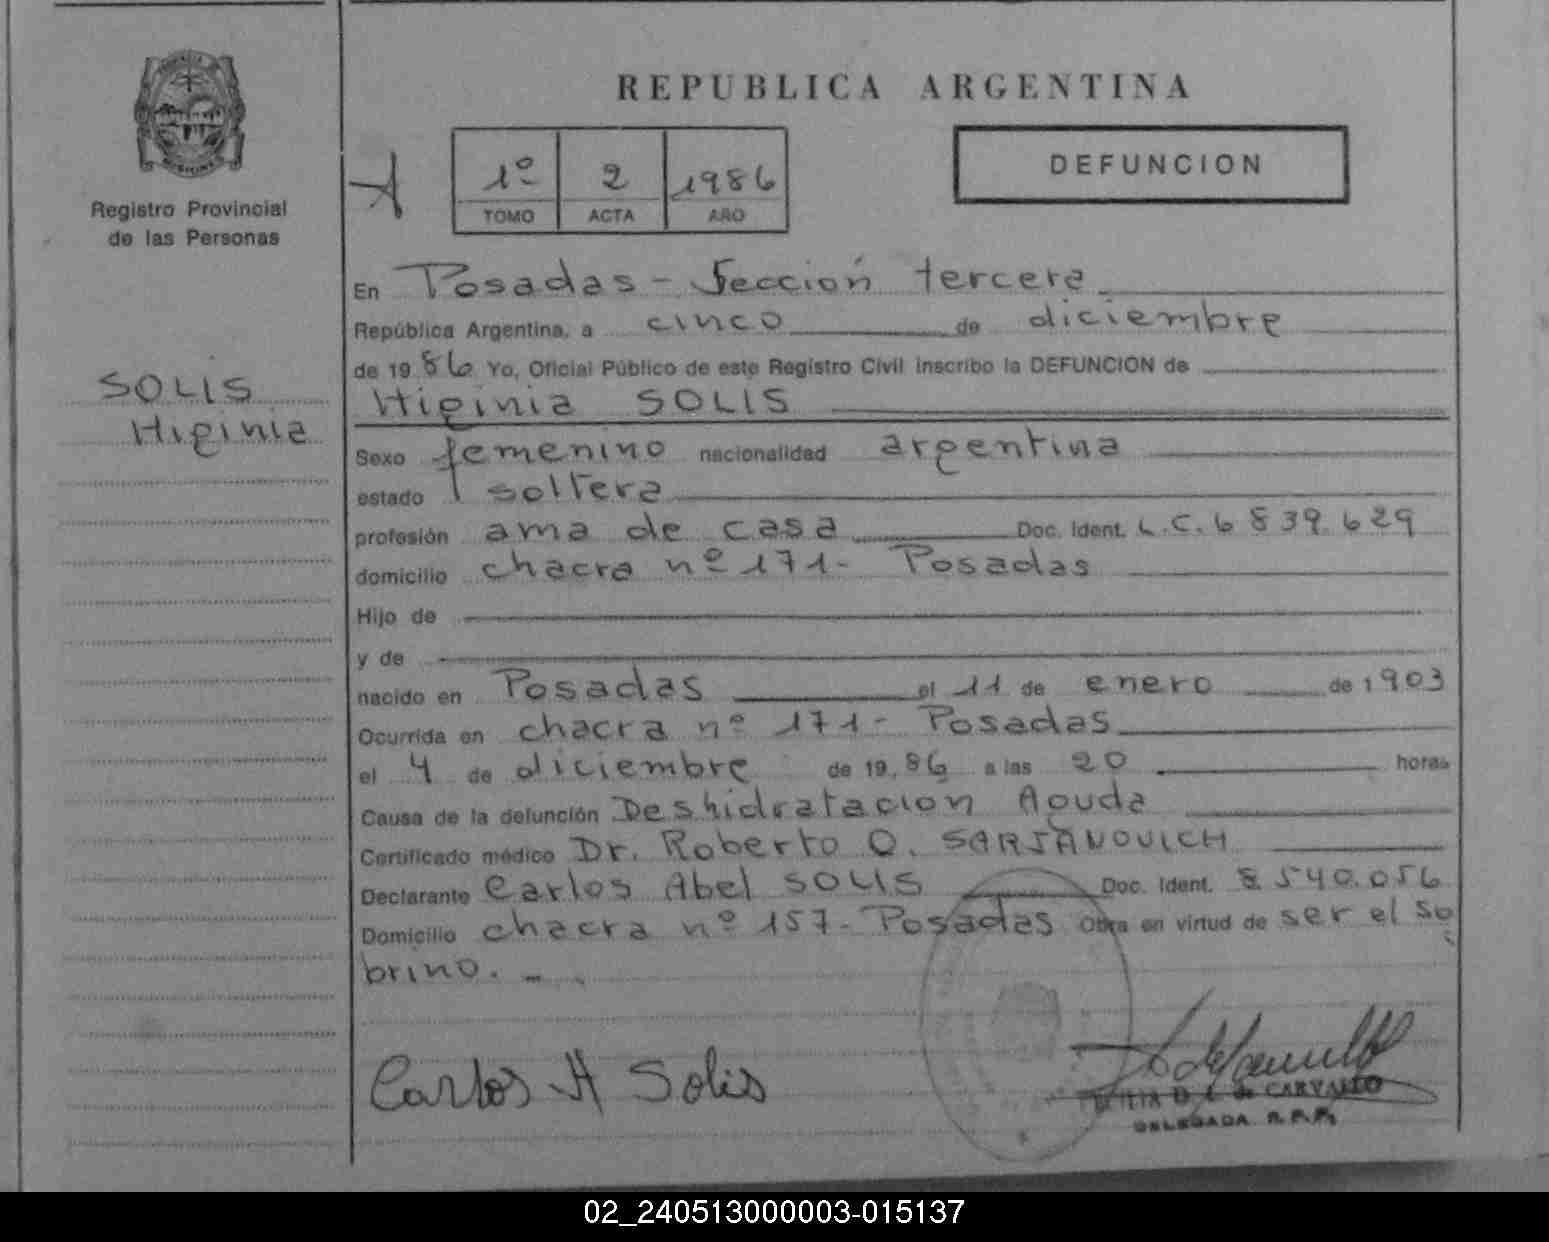 REPUBLICA ARGENTINA
1º 2 1986
TOMO ACTA AÑO
DEFUNCION
Registro Provincial
de las Personas
SOLIS
Higinia
En Posadas - Sección tercera
República Argentina, a cinco de diciembre
de 1986 Yo, Oficial Público de este Registro Civil inscribo la DEFUNCION de
Higinia SOLIS
Sexo femenino nacionalidad argentina
estado soltera
profesión ama de casa Doc. Ident. L.C. 6 839.629
domicilio chacra nº 171- Posadas
Hijo de
y de
nacido en Posadas el 11 de enero de 1903
Ocurrida en chacra nº 171- Posadas
el 4 de diciembre de 1986 a las 20 horas
Causa de la defunción Deshidratación Aguda
Certificado médico Dr. Roberto O. SARJANOVICH
Declarante Carlos Abel SOLIS Doc. Ident. 8 540.056
Domicilio chacra nº 157- Posadas Obra en virtud de ser el so
brino. -
Carlos A Solis
D. L. de CARVALLO
DELEGADA R.P.P.
02_240513000003-015137